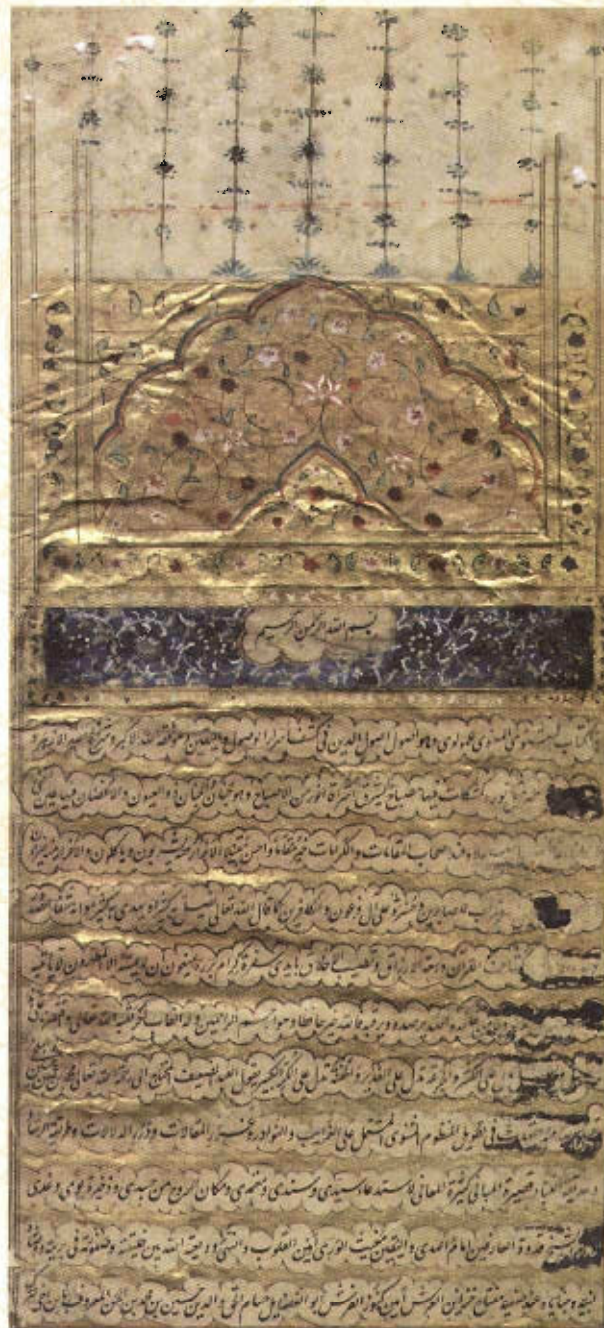 بسم الله الرحمن الرحیم
الکتاب المثنوی المعنوی المولوی وهو اصول اصول الدین فی کشف اسرار الوصول والیقین وهو فقه الله الاکبر وشرع الله الازهر و
نوره کمشکات فیها مصباح یشرق اشراقا انور من الاصباح وهو جنان الجنان ذو العیون والاغصان فیها عین
اصحاب المقامات والکرامات خیر مقاما واحسن مقیلا الابرار فیه یشربون ویاکلون والاحرار منه
شراب للصابرین وحسرة علی ال فرعون والکافرین کما قال الله تعالی یضل به کثیرا ویهدی به کثیرا وانه شفاء
القران وسعة الارزاق وتطییب الاخلاق بایدی سفرة کرام بررة یمنعون ان لا یمسه الا المطهرون لا یاتیه
والله یرصده ویرقبه فالله خیر حافظا وهو ارحم الراحمین وله القاب اخر لقبه الله تعالی
یدل علی الکثیر والجرعة تدل علی الغدیر والحفنة تدل علی البیدر الکبیر یقول العبد الضعیف المحتاج الی رحمة الله تعالی محمد بن
فی تطویل المنظوم المثنوی المشتمل علی الغرایب والنوادر وغرر المقالات ودرر الدلالات وطریقة الزهاد
وحدیقة العباد قصیرة المبانی کثیرة المعانی لاستدعاء سیدی وسندی ومعتمدی ومکان الروح من جسدی وذخیرة یومی وغدی
الشیخ قدوة العارفین امام الهدی والیقین مغیث الوری امین القلوب والنهی ودیعة الله بین خلیقته وصفوته فی بریته
لنبیه وخبایاه عند صفیه مفتاح خزاین العرش امین کنوز الفرش ابو الفضایل حسام الحق والدین حسین بن محمد بن الحسن المعروف بابن اخی